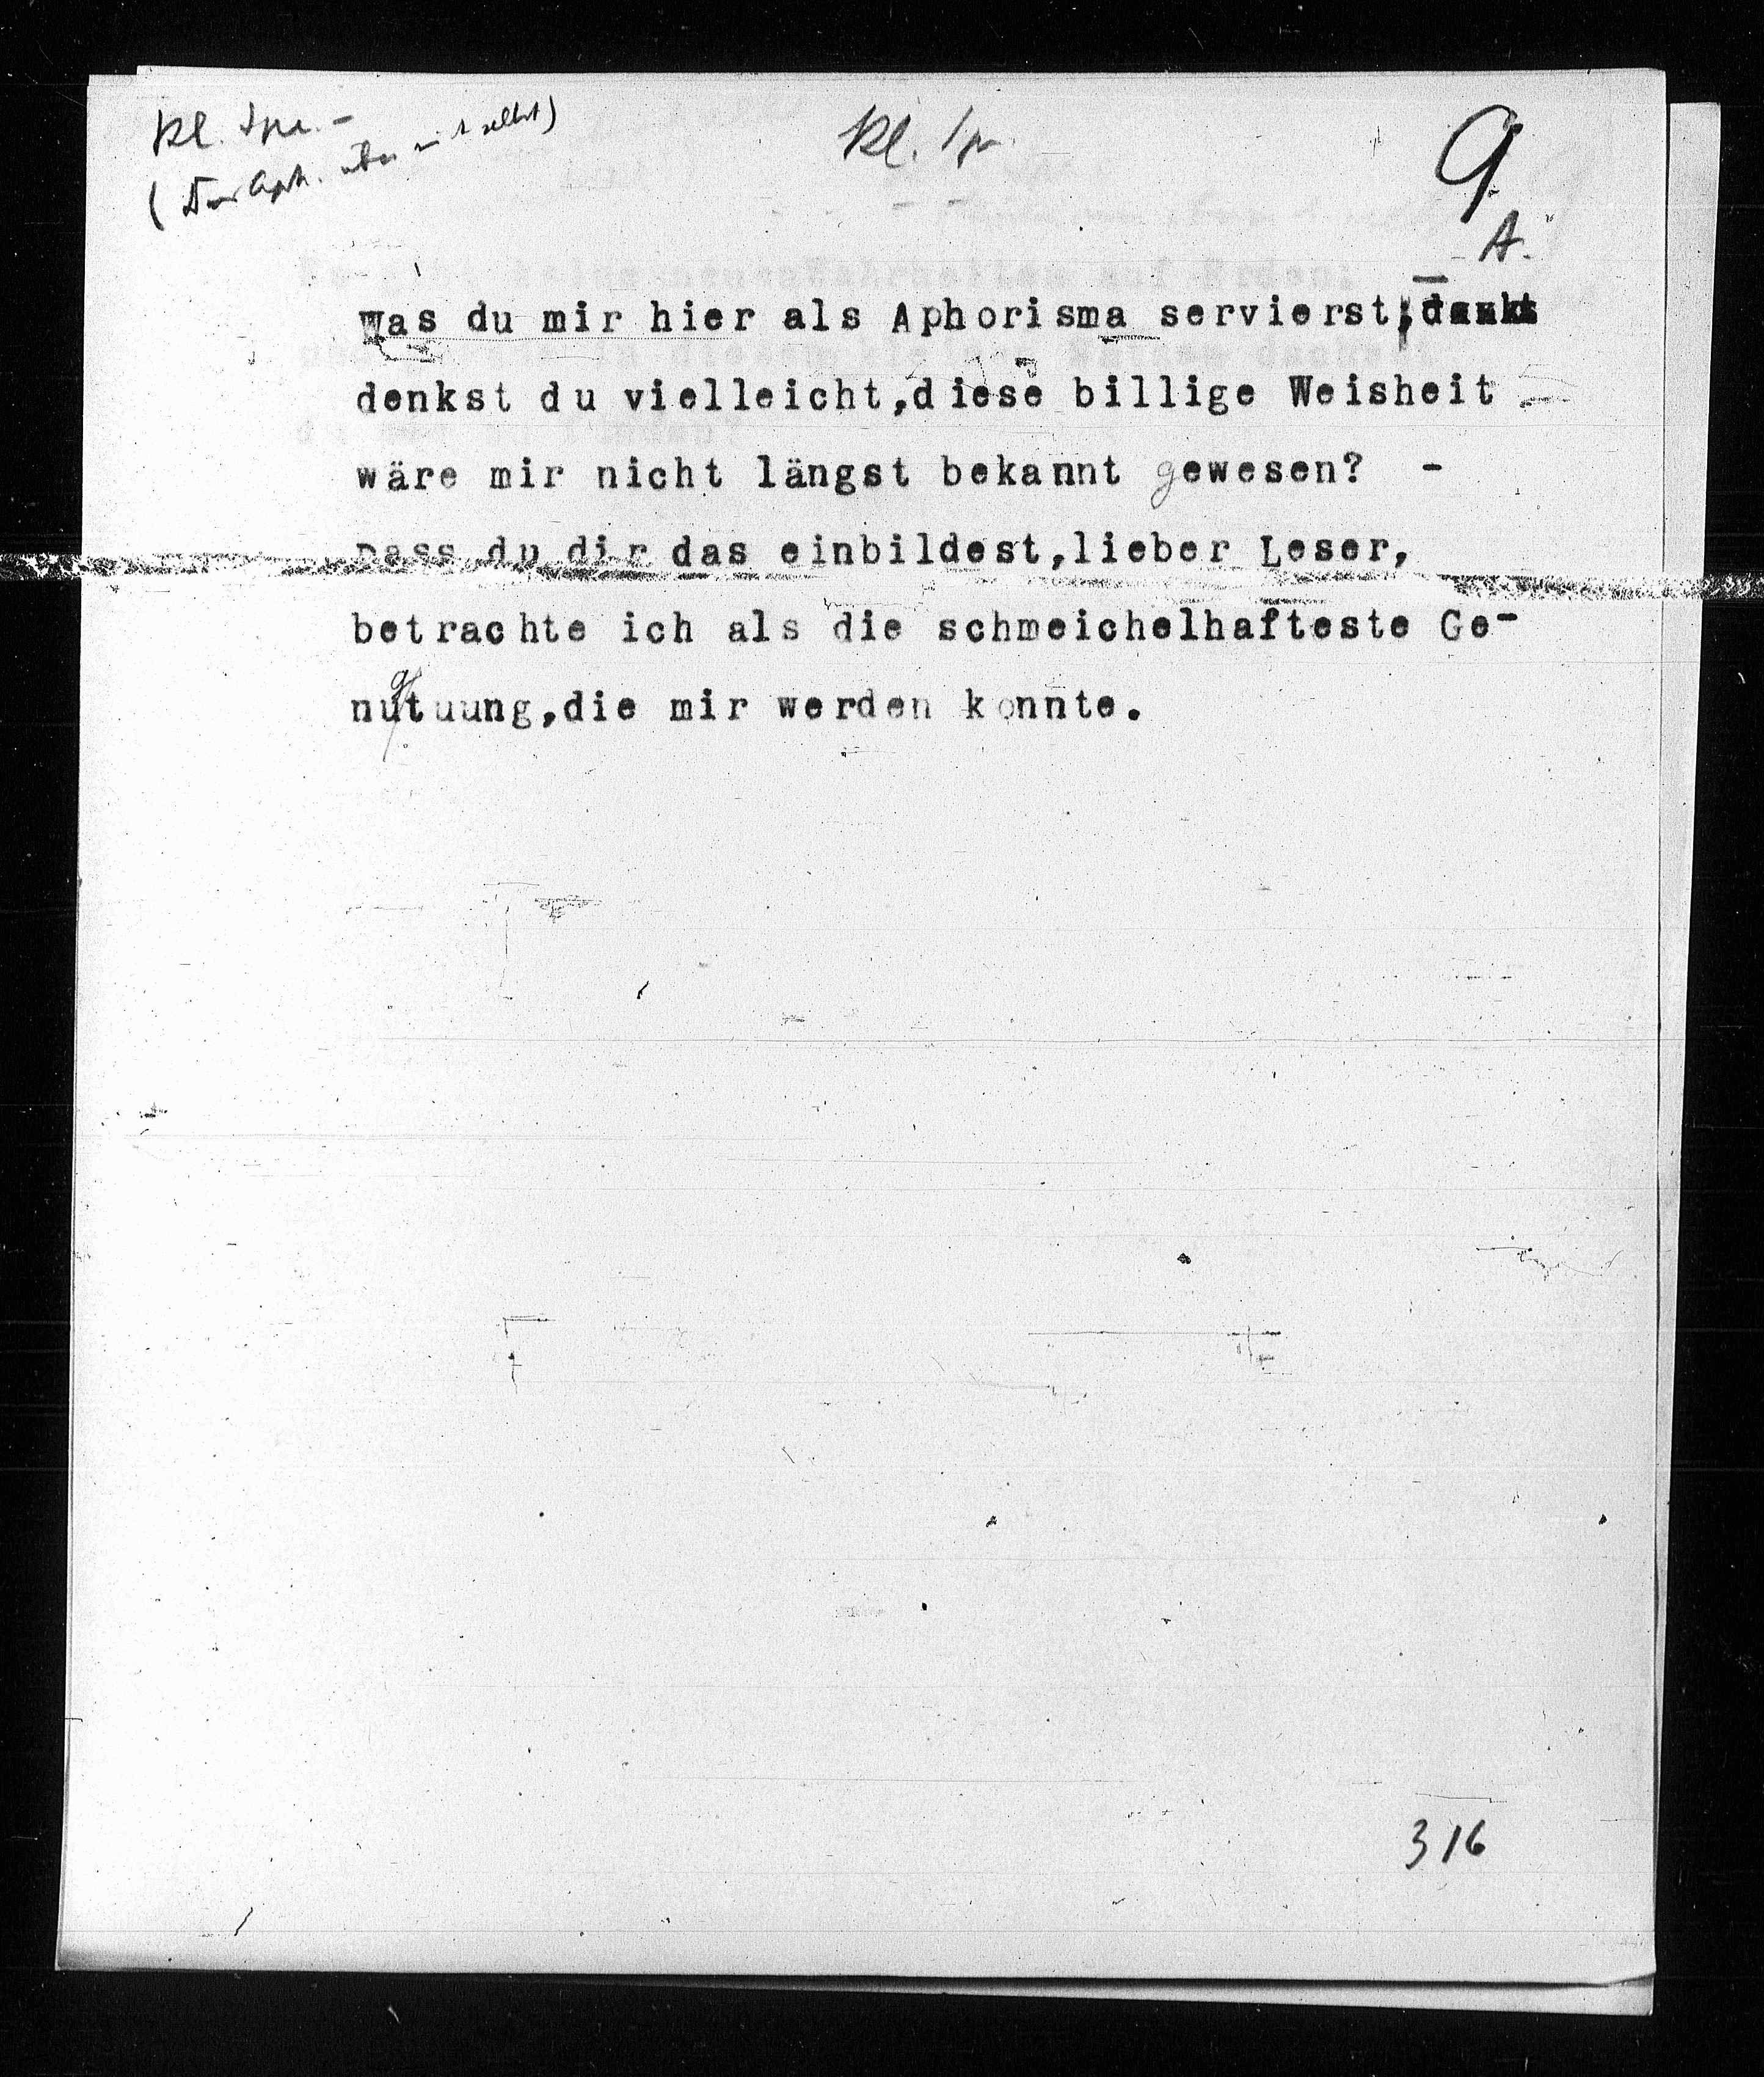 Kl. Spr. –
(Der Aph. über sich selbst)
Kl. Spr.
9
A.
Was du mir hier als Aphorisma servierst,
denkst du vielleicht,diese billige Weisheit
wäre mir nicht längst bekannt gewesen?  -
Dass du dir das einbildest,lieber Leser,
betrachte ich als die schmeichelhafteste Ge-
nugtuung,die mir werden konnte.
316